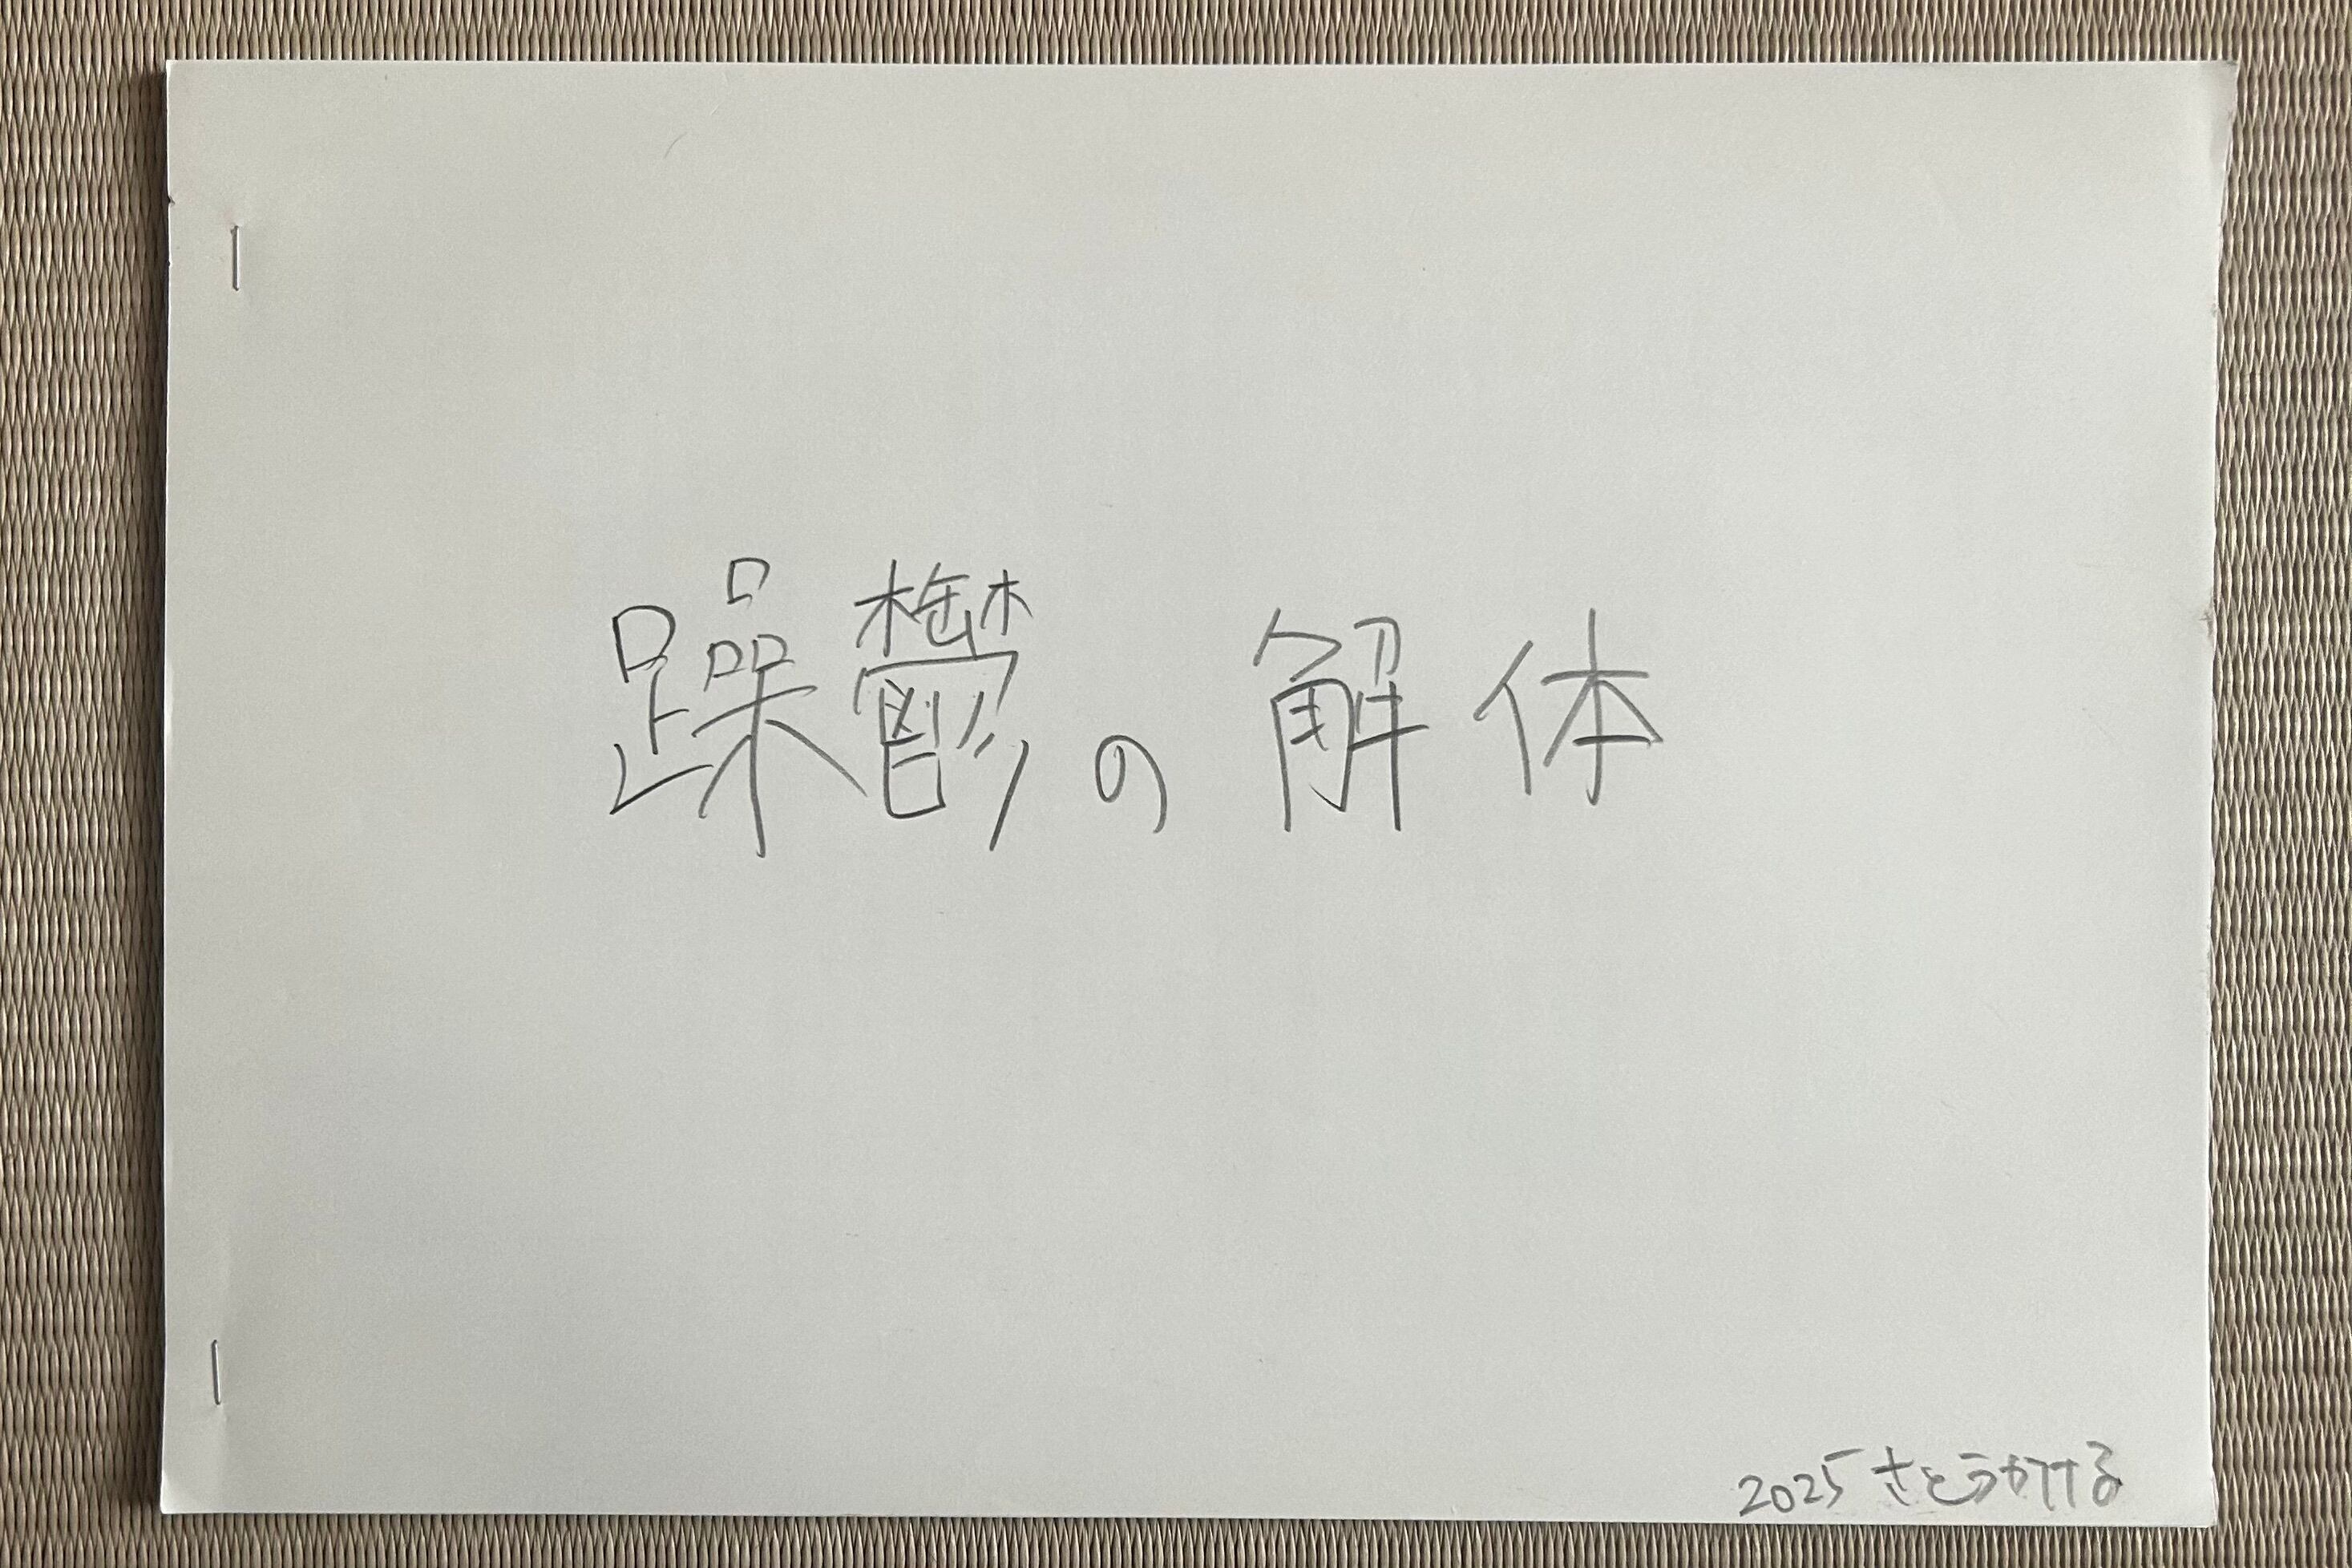 躁鬱の解体
2025 さとうかける